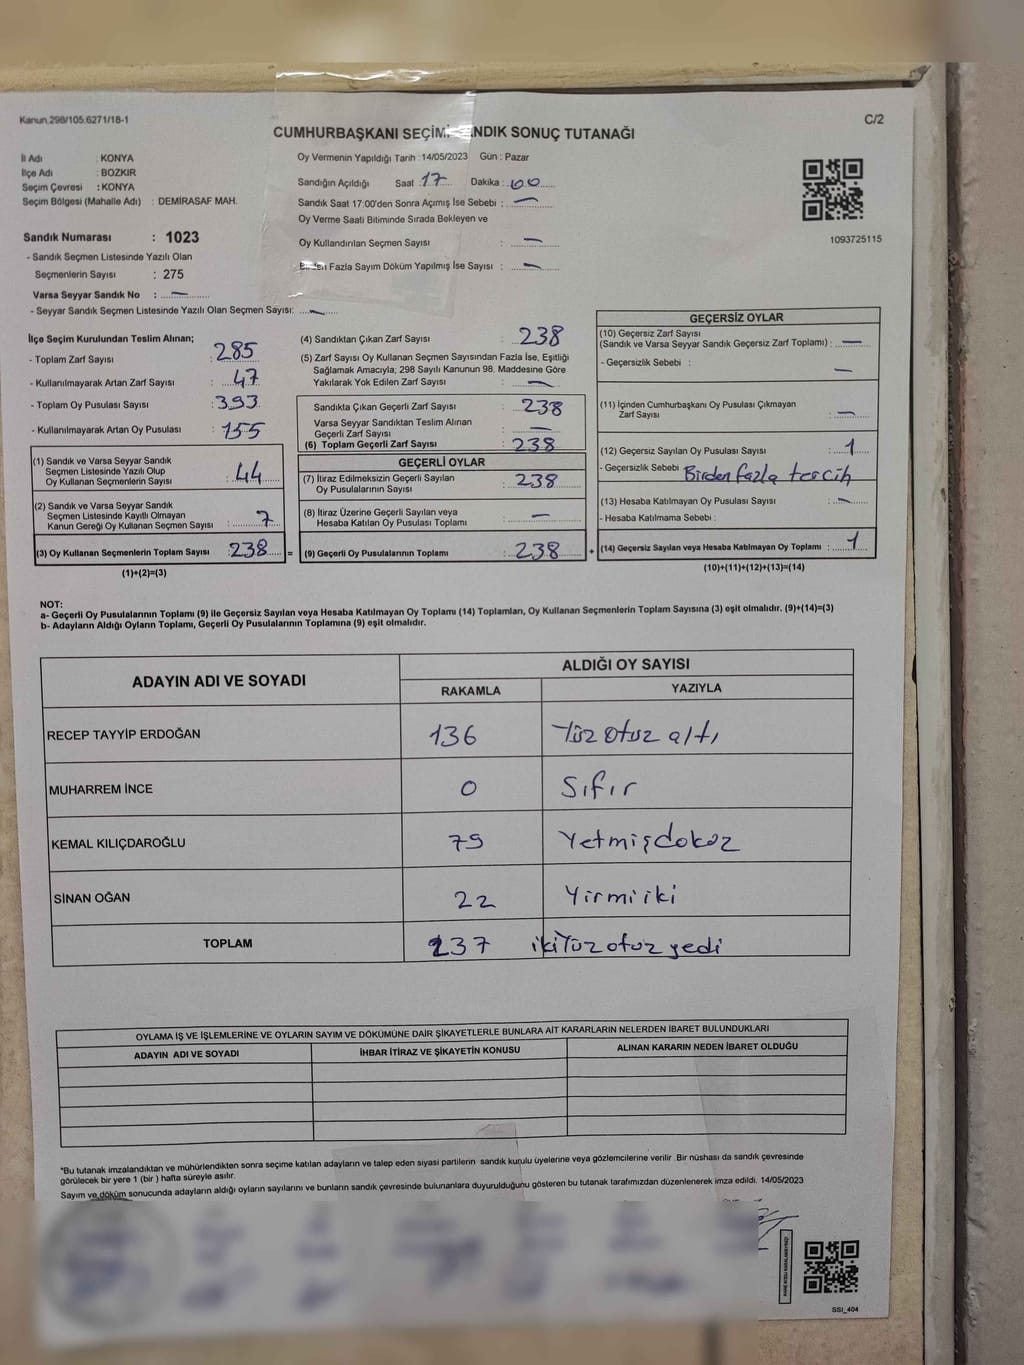 Kanun.298/105.6271/18-1
C/2
CUMHURBAŞKANI SEÇİMİ SANDIK SONUÇ TUTANAĞI
İl Adı : KONYA
İlçe Adı : BOZKIR
Seçim Çevresi : KONYA
Seçim Bölgesi (Mahalle Adı) : DEMİRASAF MAH.
Sandık Numarası : 1023
- Sandık Seçmen Listesinde Yazılı Olan
Seçmenlerin Sayısı : 275
Varsa Seyyar Sandık No : —
- Seyyar Sandık Seçmen Listesinde Yazılı Olan Seçmen Sayısı: —
Oy Vermenin Yapıldığı Tarih : 14/05/2023 Gün : Pazar
Sandığın Açıldığı Saat : 17 Dakika : 00
Sandık Saat 17:00'den Sonra Açımış İse Sebebi : —
Oy Verme Saati Bitiminde Sırada Bekleyen ve
Oy Kullandırılan Seçmen Sayısı : —
Birden Fazla Sayım Döküm Yapılmış İse Sayısı : —
1093725115
İlçe Seçim Kurulundan Teslim Alınan;
- Toplam Zarf Sayısı : 285
- Kullanılmayarak Artan Zarf Sayısı : 47
- Toplam Oy Pusulası Sayısı : 393
- Kullanılmayarak Artan Oy Pusulası : 155
(1) Sandık ve Varsa Seyyar Sandık
Seçmen Listesinde Yazılı Olup
Oy Kullanan Seçmenlerin Sayısı : 44
(2) Sandık ve Varsa Seyyar Sandık
Seçmen Listesinde Kayıtlı Olmayan
Kanun Gereği Oy Kullanan Seçmen Sayısı : 7
(3) Oy Kullanan Seçmenlerin Toplam Sayısı : 238 =
(1)+(2)=(3)
(4) Sandıktan Çıkan Zarf Sayısı : 238
(5) Zarf Sayısı Oy Kullanan Seçmen Sayısından Fazla İse, Eşitliği
Sağlamak Amacıyla; 298 Sayılı Kanunun 98. Maddesine Göre
Yakılarak Yok Edilen Zarf Sayısı : —
Sandıkta Çıkan Geçerli Zarf Sayısı : 238
Varsa Seyyar Sandıktan Teslim Alınan
Geçerli Zarf Sayısı : —
(6) Toplam Geçerli Zarf Sayısı : 238
GEÇERLİ OYLAR
(7) İtiraz Edilmeksizin Geçerli Sayılan
Oy Pusulalarının Sayısı : 238
(8) İtiraz Üzerine Geçerli Sayılan veya
Hesaba Katılan Oy Pusulası Toplamı : —
(9) Geçerli Oy Pusulalarının Toplamı : 238 +
GEÇERSİZ OYLAR
(10) Geçersiz Zarf Sayısı
(Sandık ve Varsa Seyyar Sandık Geçersiz Zarf Toplamı) : —
- Geçersizlik Sebebi : —
(11) İçinden Cumhurbaşkanı Oy Pusulası Çıkmayan
Zarf Sayısı : —
(12) Geçersiz Sayılan Oy Pusulası Sayısı : 1
- Geçersizlik Sebebi Birden fazla tercih
(13) Hesaba Katılmayan Oy Pusulası Sayısı : —
- Hesaba Katılmama Sebebi :
(14) Geçersiz Sayılan veya Hesaba Katılmayan Oy Toplamı : 1
(10)+(11)+(12)+(13)=(14)
NOT:
a- Geçerli Oy Pusulalarının Toplamı (9) ile Geçersiz Sayılan veya Hesaba Katılmayan Oy Toplamı (14) Toplamları, Oy Kullanan Seçmenlerin Toplam Sayısına (3) eşit olmalıdır. (9)+(14)=(3)
b- Adayların Aldığı Oyların Toplamı, Geçerli Oy Pusulalarının Toplamına (9) eşit olmalıdır.
ADAYIN ADI VE SOYADI
ALDIĞI OY SAYISI
RAKAMLA YAZIYLA
RECEP TAYYİP ERDOĞAN 136 Yüz otuz altı
MUHARREM İNCE 0 Sıfır
KEMAL KILIÇDAROĞLU 79 Yetmişdokuz
SİNAN OĞAN 22 Yirmiiki
TOPLAM 237 ikiYüz otuz yedi
OYLAMA İŞ VE İŞLEMLERİNE VE OYLARIN SAYIM VE DÖKÜMÜNE DAİR ŞİKAYETLERLE BUNLARA AİT KARARLARIN NELERDEN İBARET BULUNDUKLARI
ADAYIN ADI VE SOYADI İHBAR İTİRAZ VE ŞİKAYETİN KONUSU ALINAN KARARIN NEDEN İBARET OLDUĞU
*Bu tutanak imzalandıktan ve mühürlendikten sonra seçime katılan adayların ve talep eden siyasi partilerin sandık kurulu üyelerine veya gözlemcilerine verilir .Bir nüshası da sandık çevresinde
görülecek bir yere 1 (bir ) hafta süreyle asılır.
Sayım ve döküm sonucunda adayların aldığı oyların sayılarını ve bunların sandık çevresinde bulunanlara duyurulduğunu gösteren bu tutanak tarafımızdan düzenlenerek imza edildi. 14/05/2023
SSI_404